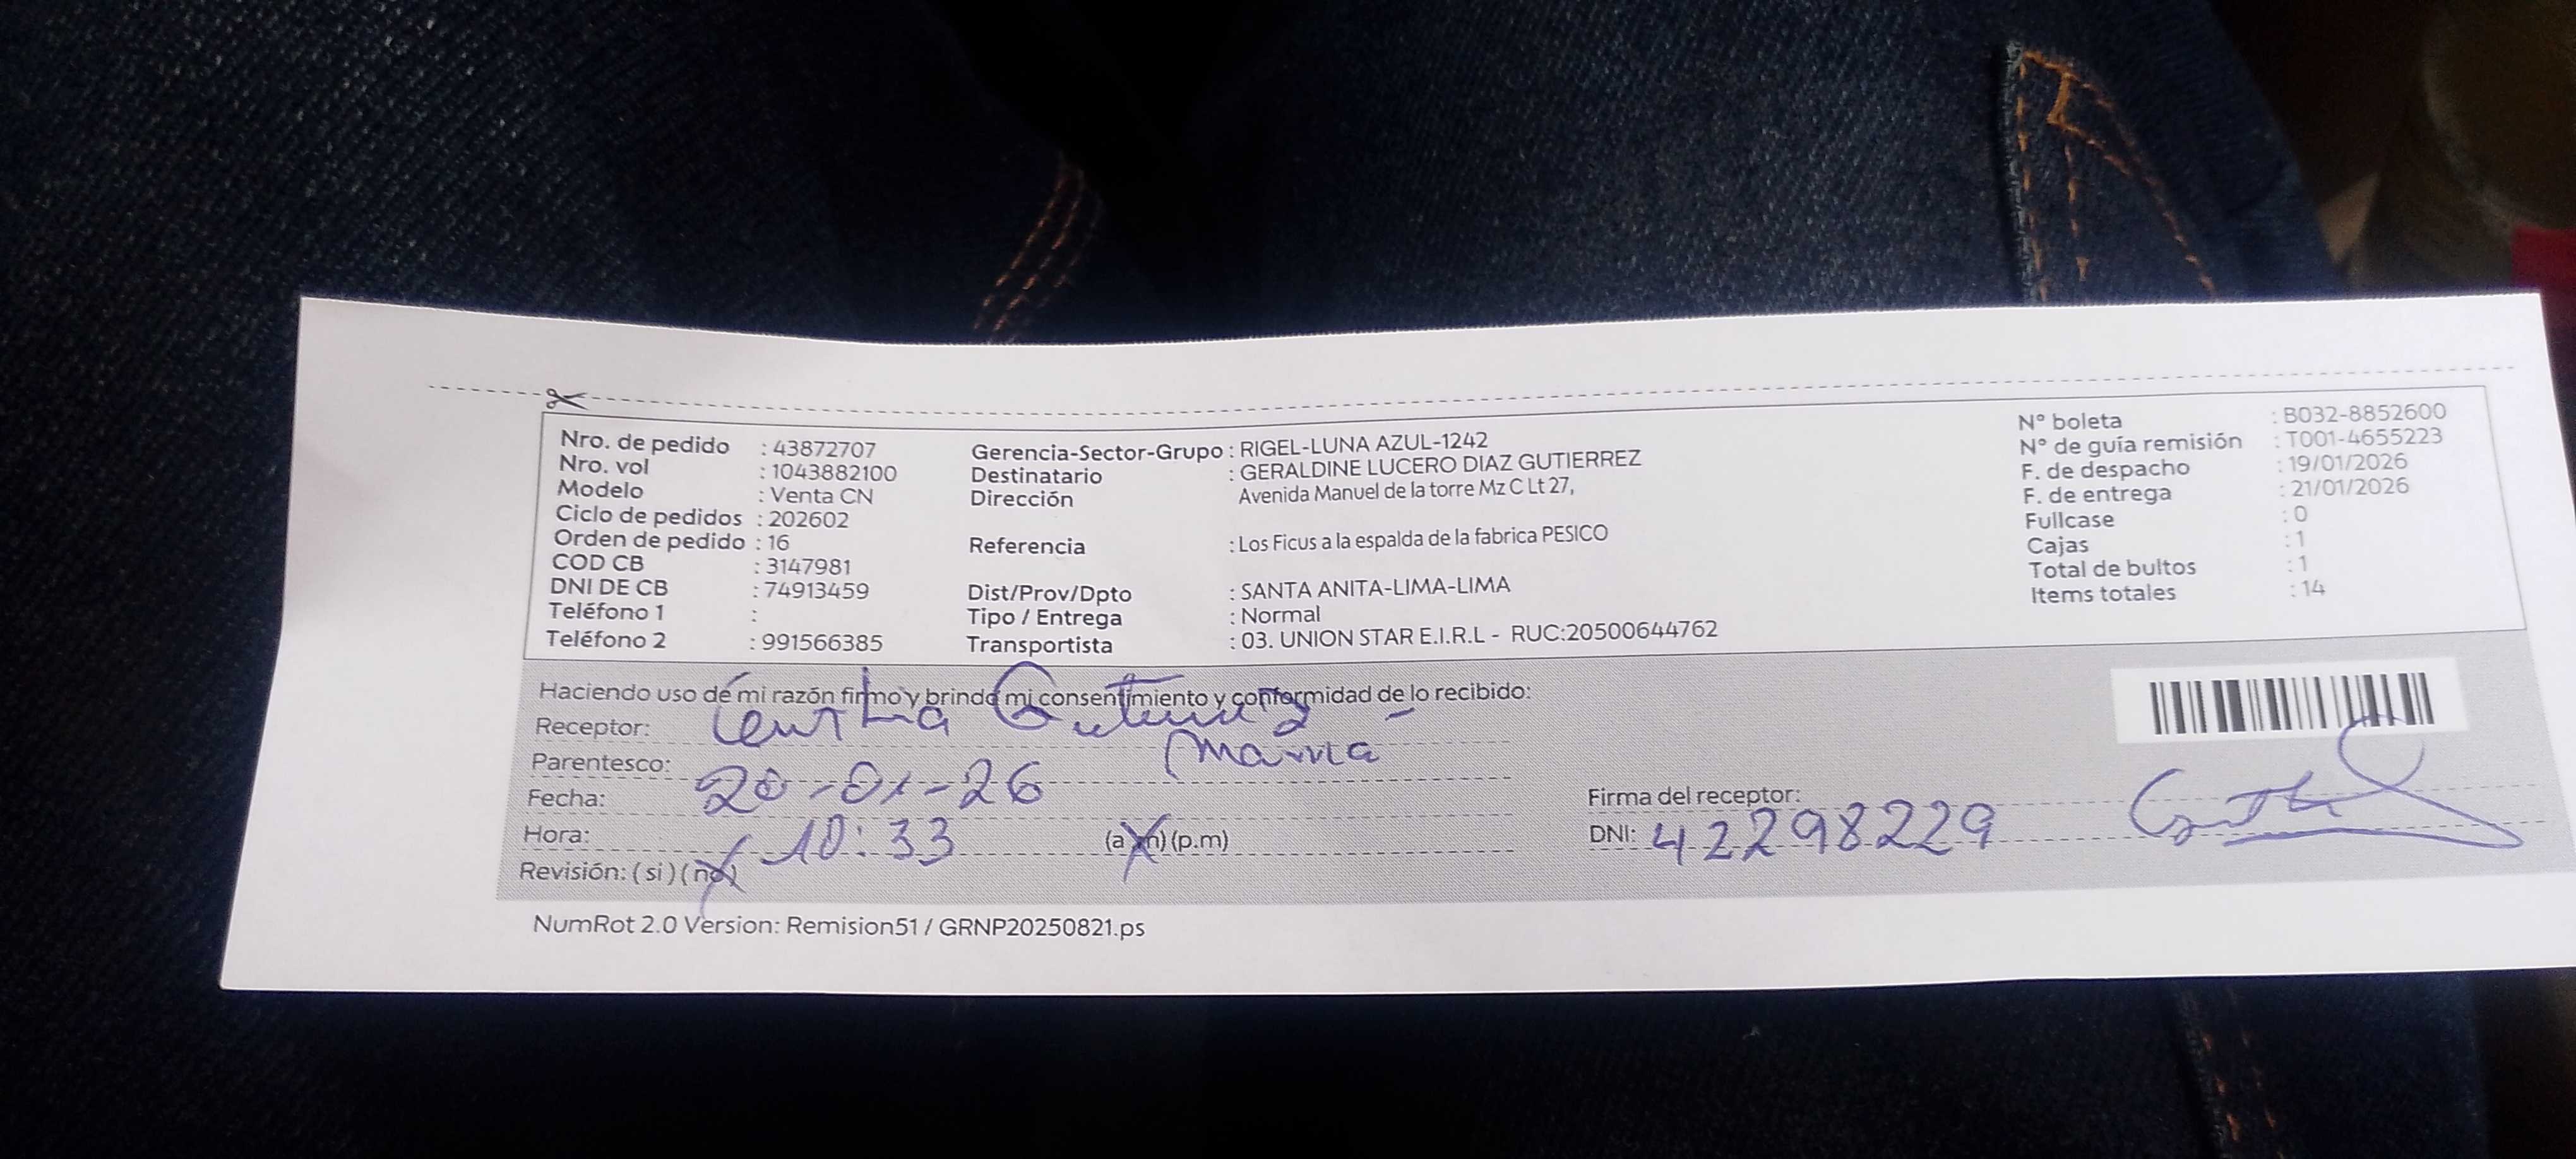 Nro. de pedido : 43872707
Nro. vol : 1043882100
Modelo : Venta CN
Ciclo de pedidos : 202602
Orden de pedido : 16
COD CB : 3147981
DNI DE CB : 74913459
Teléfono 1 :
Teléfono 2 : 991566385
Gerencia-Sector-Grupo : RIGEL-LUNA AZUL-1242
Destinatario : GERALDINE LUCERO DIAZ GUTIERREZ
Dirección Avenida Manuel de la torre Mz C Lt 27,
Referencia : Los Ficus a la espalda de la fabrica PESICO
Dist/Prov/Dpto : SANTA ANITA-LIMA-LIMA
Tipo / Entrega : Normal
Transportista : 03. UNION STAR E.I.R.L - RUC:20500644762
N° boleta : B032-8852600
N° de guía remisión : T001-4655223
F. de despacho : 19/01/2026
F. de entrega : 21/01/2026
Fullcase : 0
Cajas : 1
Total de bultos : 1
Items totales : 14
Haciendo uso de mi razón firmo y brindo mi consentimiento y conformidad de lo recibido:
Receptor:
Parentesco: Mamá
Fecha: 20-01-26
Hora: 10:33 (a.m) (p.m)
Revisión: ( si ) ( no )
Firma del receptor:
DNI: 42298229
NumRot 2.0 Version: Remision51 / GRNP20250821.ps